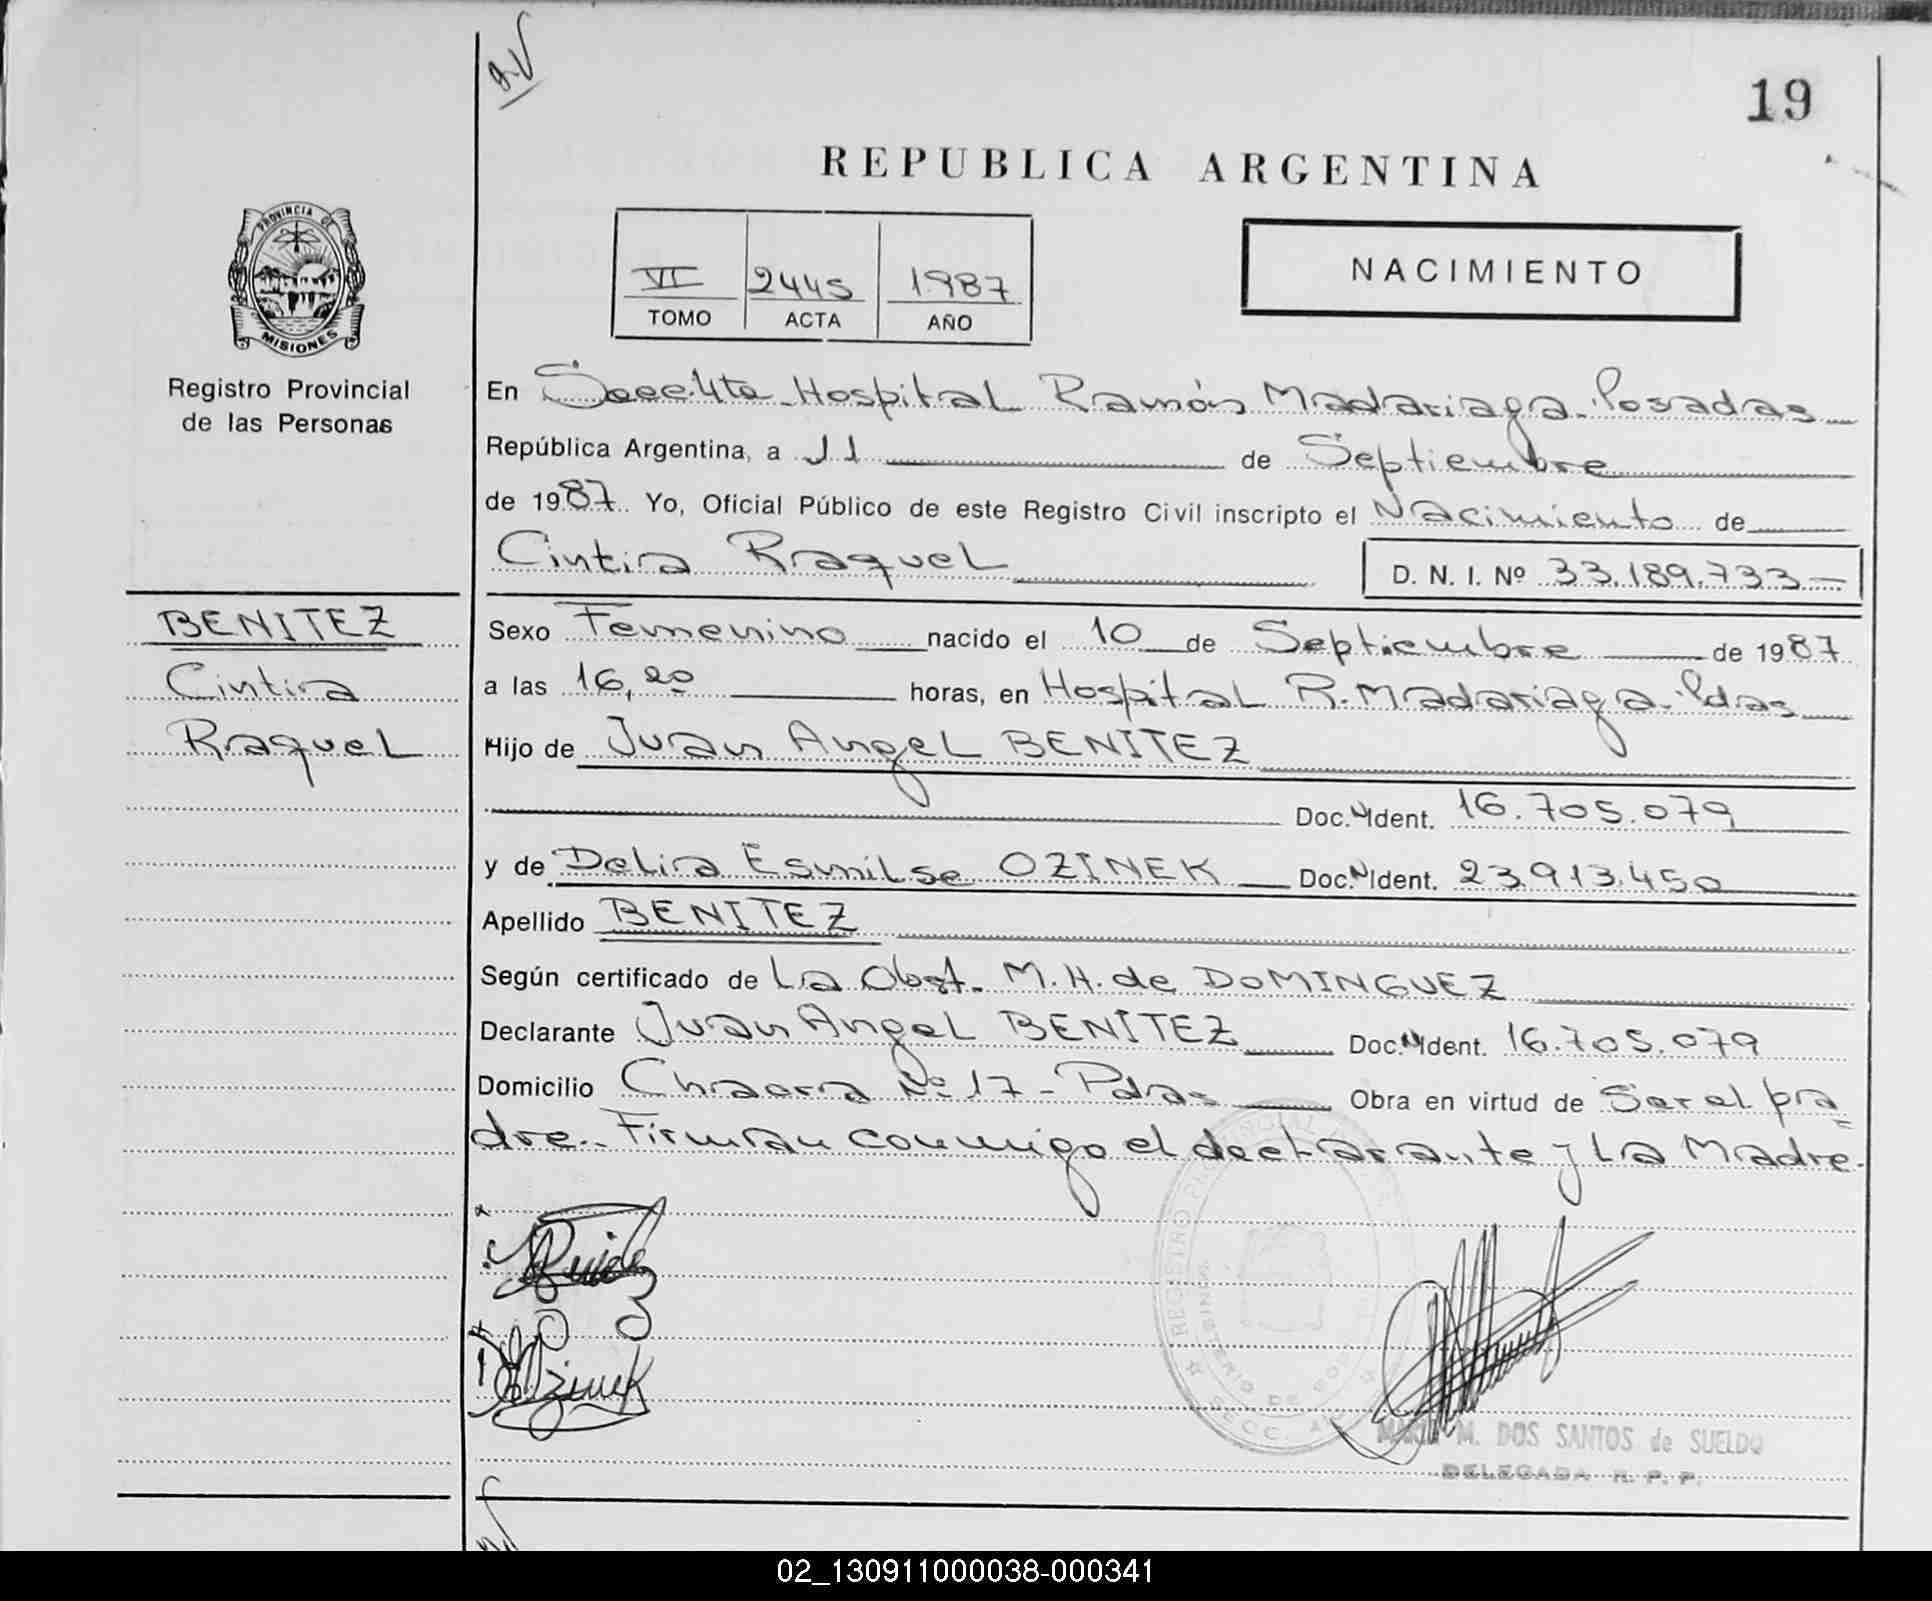 19
REPUBLICA ARGENTINA
PROVINCIA DE
MISIONES
Registro Provincial
de las Personas
VI 2445 1987
TOMO ACTA AÑO
NACIMIENTO
En Hospital Ramón Madariaga-Posadas
República Argentina, a 11 de Septiembre
de 1987. Yo, Oficial Público de este Registro Civil inscripto el Nacimiento de
Cintia Raquel
D. N. I. Nº 33.189.733-
BENITEZ
Cintia
Raquel
Sexo Femenino nacido el 10 de Septiembre de 1987
a las 16,20 horas, en Hospital R. Madariaga-Pdas
Hijo de Juan Angel BENITEZ
Doc.NIdent. 16.705.079
y de Delia Esmilse OZINEK Doc.NIdent. 23.913.450
Apellido BENITEZ
Según certificado de La Obst. M.H. de DOMINGUEZ
Declarante Juan Angel BENITEZ Doc.NIdent. 16.705.079
Domicilio Chacra Nº 17 - Pdas Obra en virtud de Ser el pa=
dre.- Firman conmigo el declarante y La Madre.
MARIA M. DOS SANTOS de SUELDO
DELEGADA R. P. P.
02_130911000038-000341